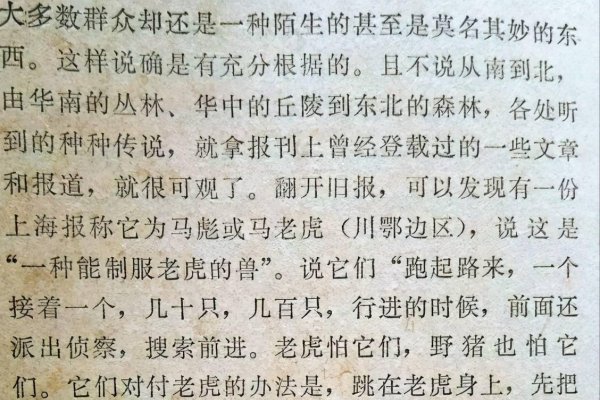 大多数群众却还是一种陌生的甚至是莫名其妙的东
西。这样说确是有充分根据的。且不说从南到北，
由华南的丛林、华中的丘陵到东北的森林，各处听
到的种种传说，就拿报刊上曾经登载过的一些文章
和报道，就很可观了。翻开旧报，可以发现有一份
上海报称它为马彪或马老虎（川鄂边区），说这是
“一种能制服老虎的兽”。说它们“跑起路来，一个
接着一个，几十只，几百只，行进的时候，前面还
派出侦察，搜索前进。老虎怕它们，野猪也怕它
们。它们对付老虎的办法是，跳在老虎身上，先把